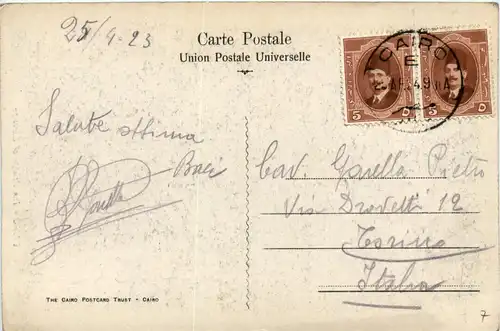 25/4-23
Carte Postale
Union Postale Universelle
CAIRO
E
5 5
Salute ottima
Baci
Cav. Garella Pietro
Via Drovetti 12
Torino
Italia
THE CAIRO POSTCARD TRUST - CAIRO
7